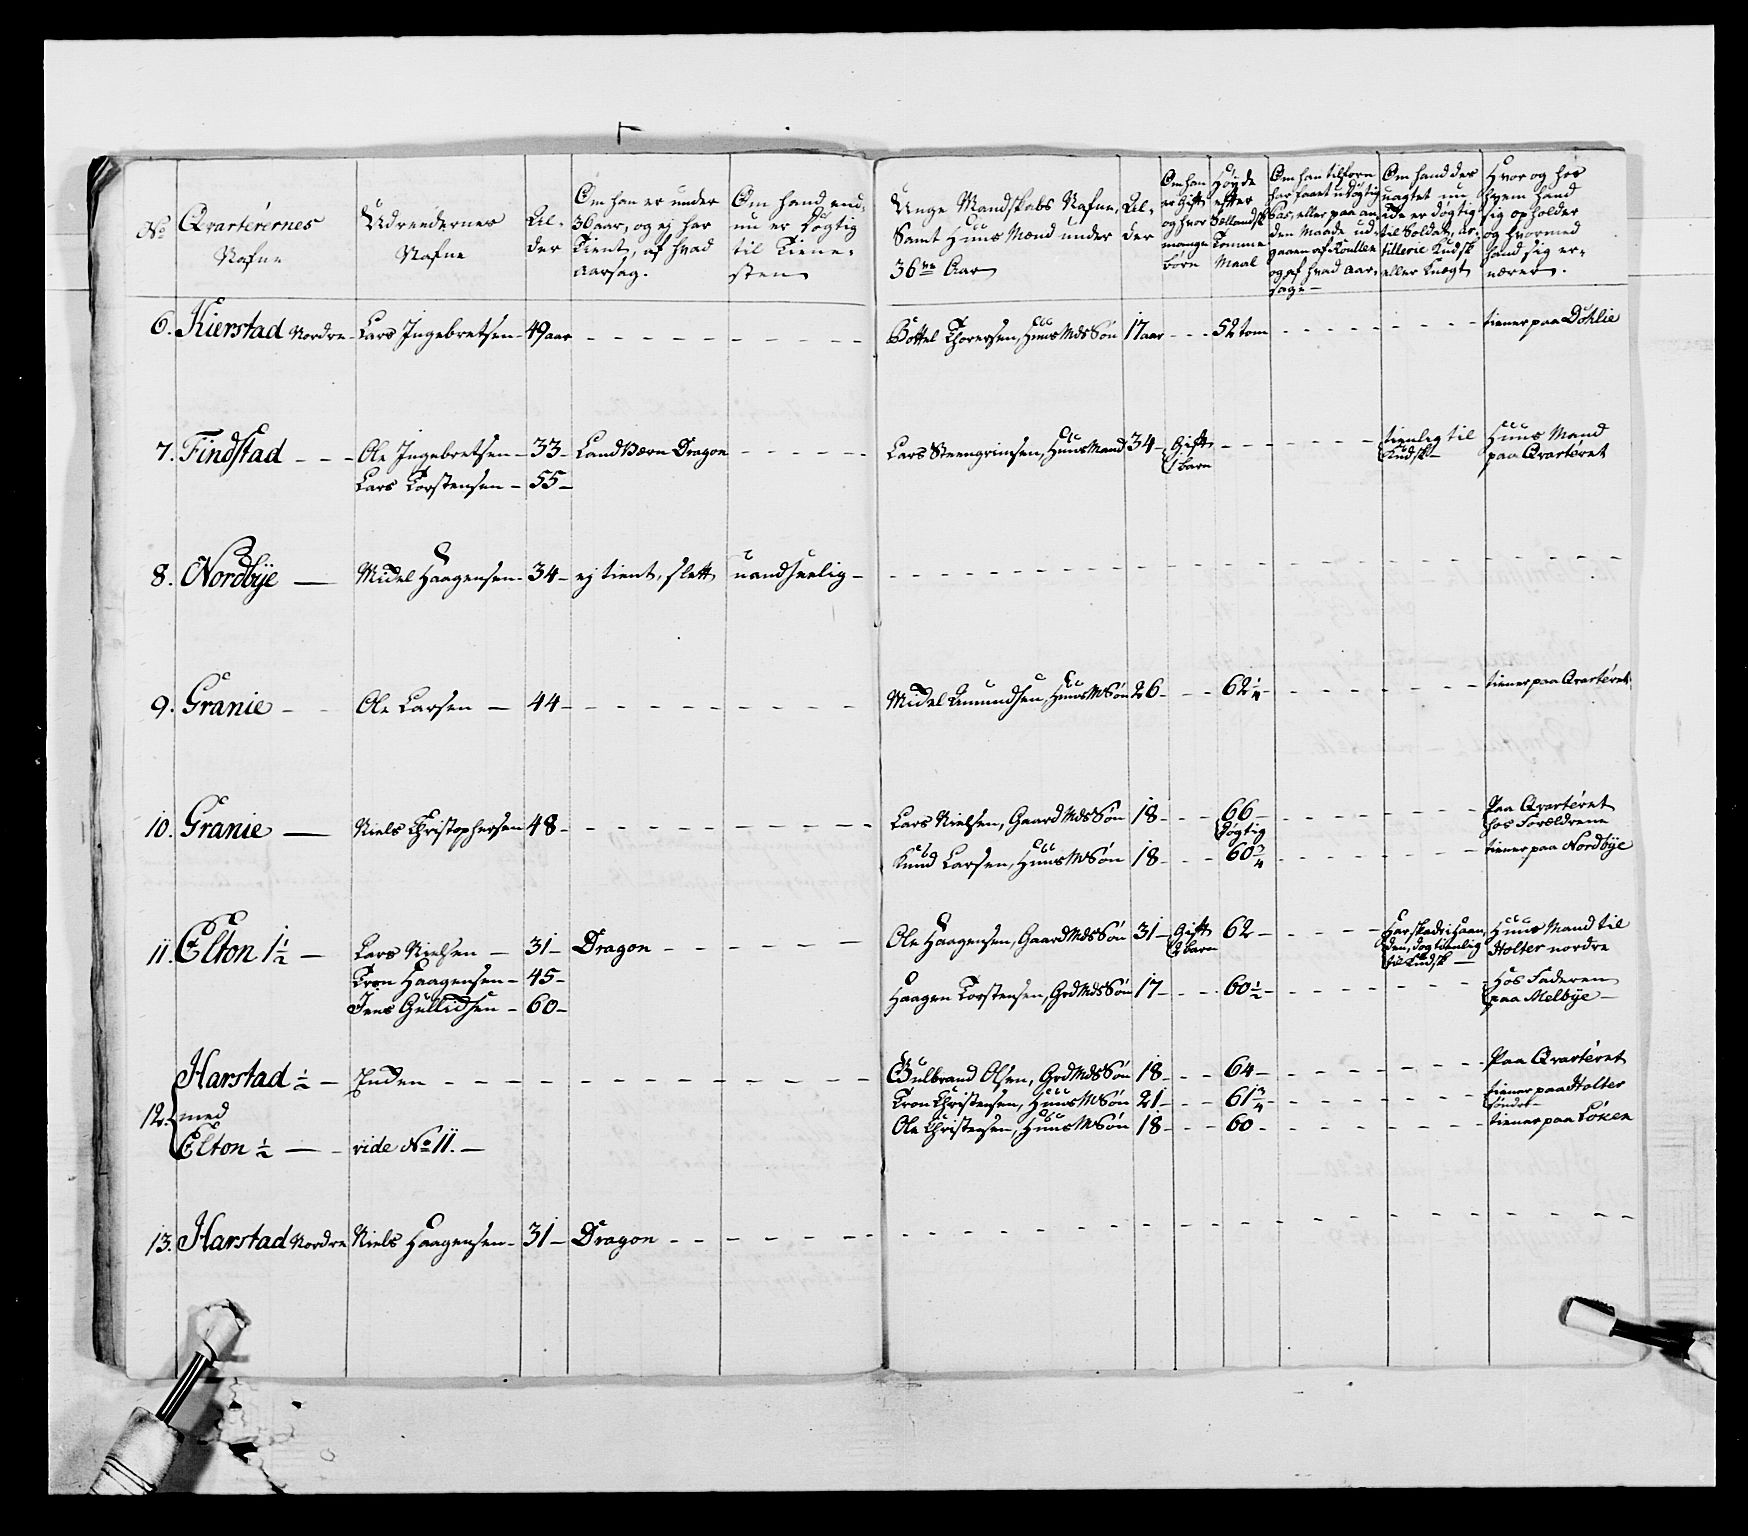 No
Qvarterernes
Nafne
Udreedernes
Nafne
Al-
der
Om han er under
36 aar, og ej har
Tient, af hvad
aarsag.
Om hand end-
nu er Døgtig
til Tiene-
sten
Unge Mandskabs Nafne,
Samt Huus Mænd under
36te Aar
Al-
der
Om han
er Gift
og hvor
mange
børn
Høyde
efter
Sellandsk
Tomme
Maal
Om han tilforn
har faaet udøgtig
Pas, eller paa an-
den Maade ud-
gaaen af Roullen
og af hvad Aar-
sage
Om hand des
uagtet nu
Tide er døgtig
til Soldat, Ar-
tillerie Kudsk
eller Knegt
Hvor og hos
hvem hand
sig opholder
og hvormed
hand sig er-
nærer.
6. Kierstad Nordre - Lars Ingebretsen - 49 aar - - - Bottel Thoresen, Huus Mds Søn 17 aar - - - 52 tom - - - tiener paa Dohlie
7. Findstad - - - Ole Ingebretsen - 33 - Land Værn Dragon - - - Lars Steengrimsen, Huus Mand 34 - Gift - - - tienlig til Huus Mand
1 barn Kudsk - paa Qvarteret
Lars Torstensen - 55 -
8. Nordbye — Midel Haagensen - 34 - ej tient, slett uandseelig - - -
9. Granie - - Ole Larsen — 44 - - - Midel Amundsen, Huus M Søn 26 - - - 62 1/4 - - - tiener paa Qvarteret
10. Granie — Niels Christophersen 48 - - - Lars Nielsen, Gaard Mds Søn 18 - - - 66 - - - Paa Qvarteret
døgtig hos Forældrene
Knud Larsen, Huus M Søn 18 - - - 60 3/4 - - - tiener paa Nordbye
11. Elton 1 1/2 — Lars Nielsen — 31 - Dragon - - - Ole Haagensen, Gaard Mds Søn 31 - Gift 62 - - - Har skade i Haan- Huus Mand til
2 barn den, dog tienlig Holter nordre
til Kudsk —
Tron Haagensen - 45 -
Haagen Torstensen, Grd Mds Søn 17 - - - 60 1/2 - - - Hos Faderen
paa Melbye —
Jens Gullidsen - 60 -
Harstad 1/2 — Inden - - - Gulbrand Olsen, Grd Mds Søn 18 - - - 64 - - - Paa Qvarteret
12. med Tron Christensen, Huus M Søn 21 - - - 61 3/4 - - - tiener paa Holter
søndre
Ole Christensen, Huus M Søn 18 - - - 60 - - - tiener paa Løken
Elton 1/2 — - vide No 11. —
13. Harstad Nordre Niels Haagensen - 31 - Dragon - - -